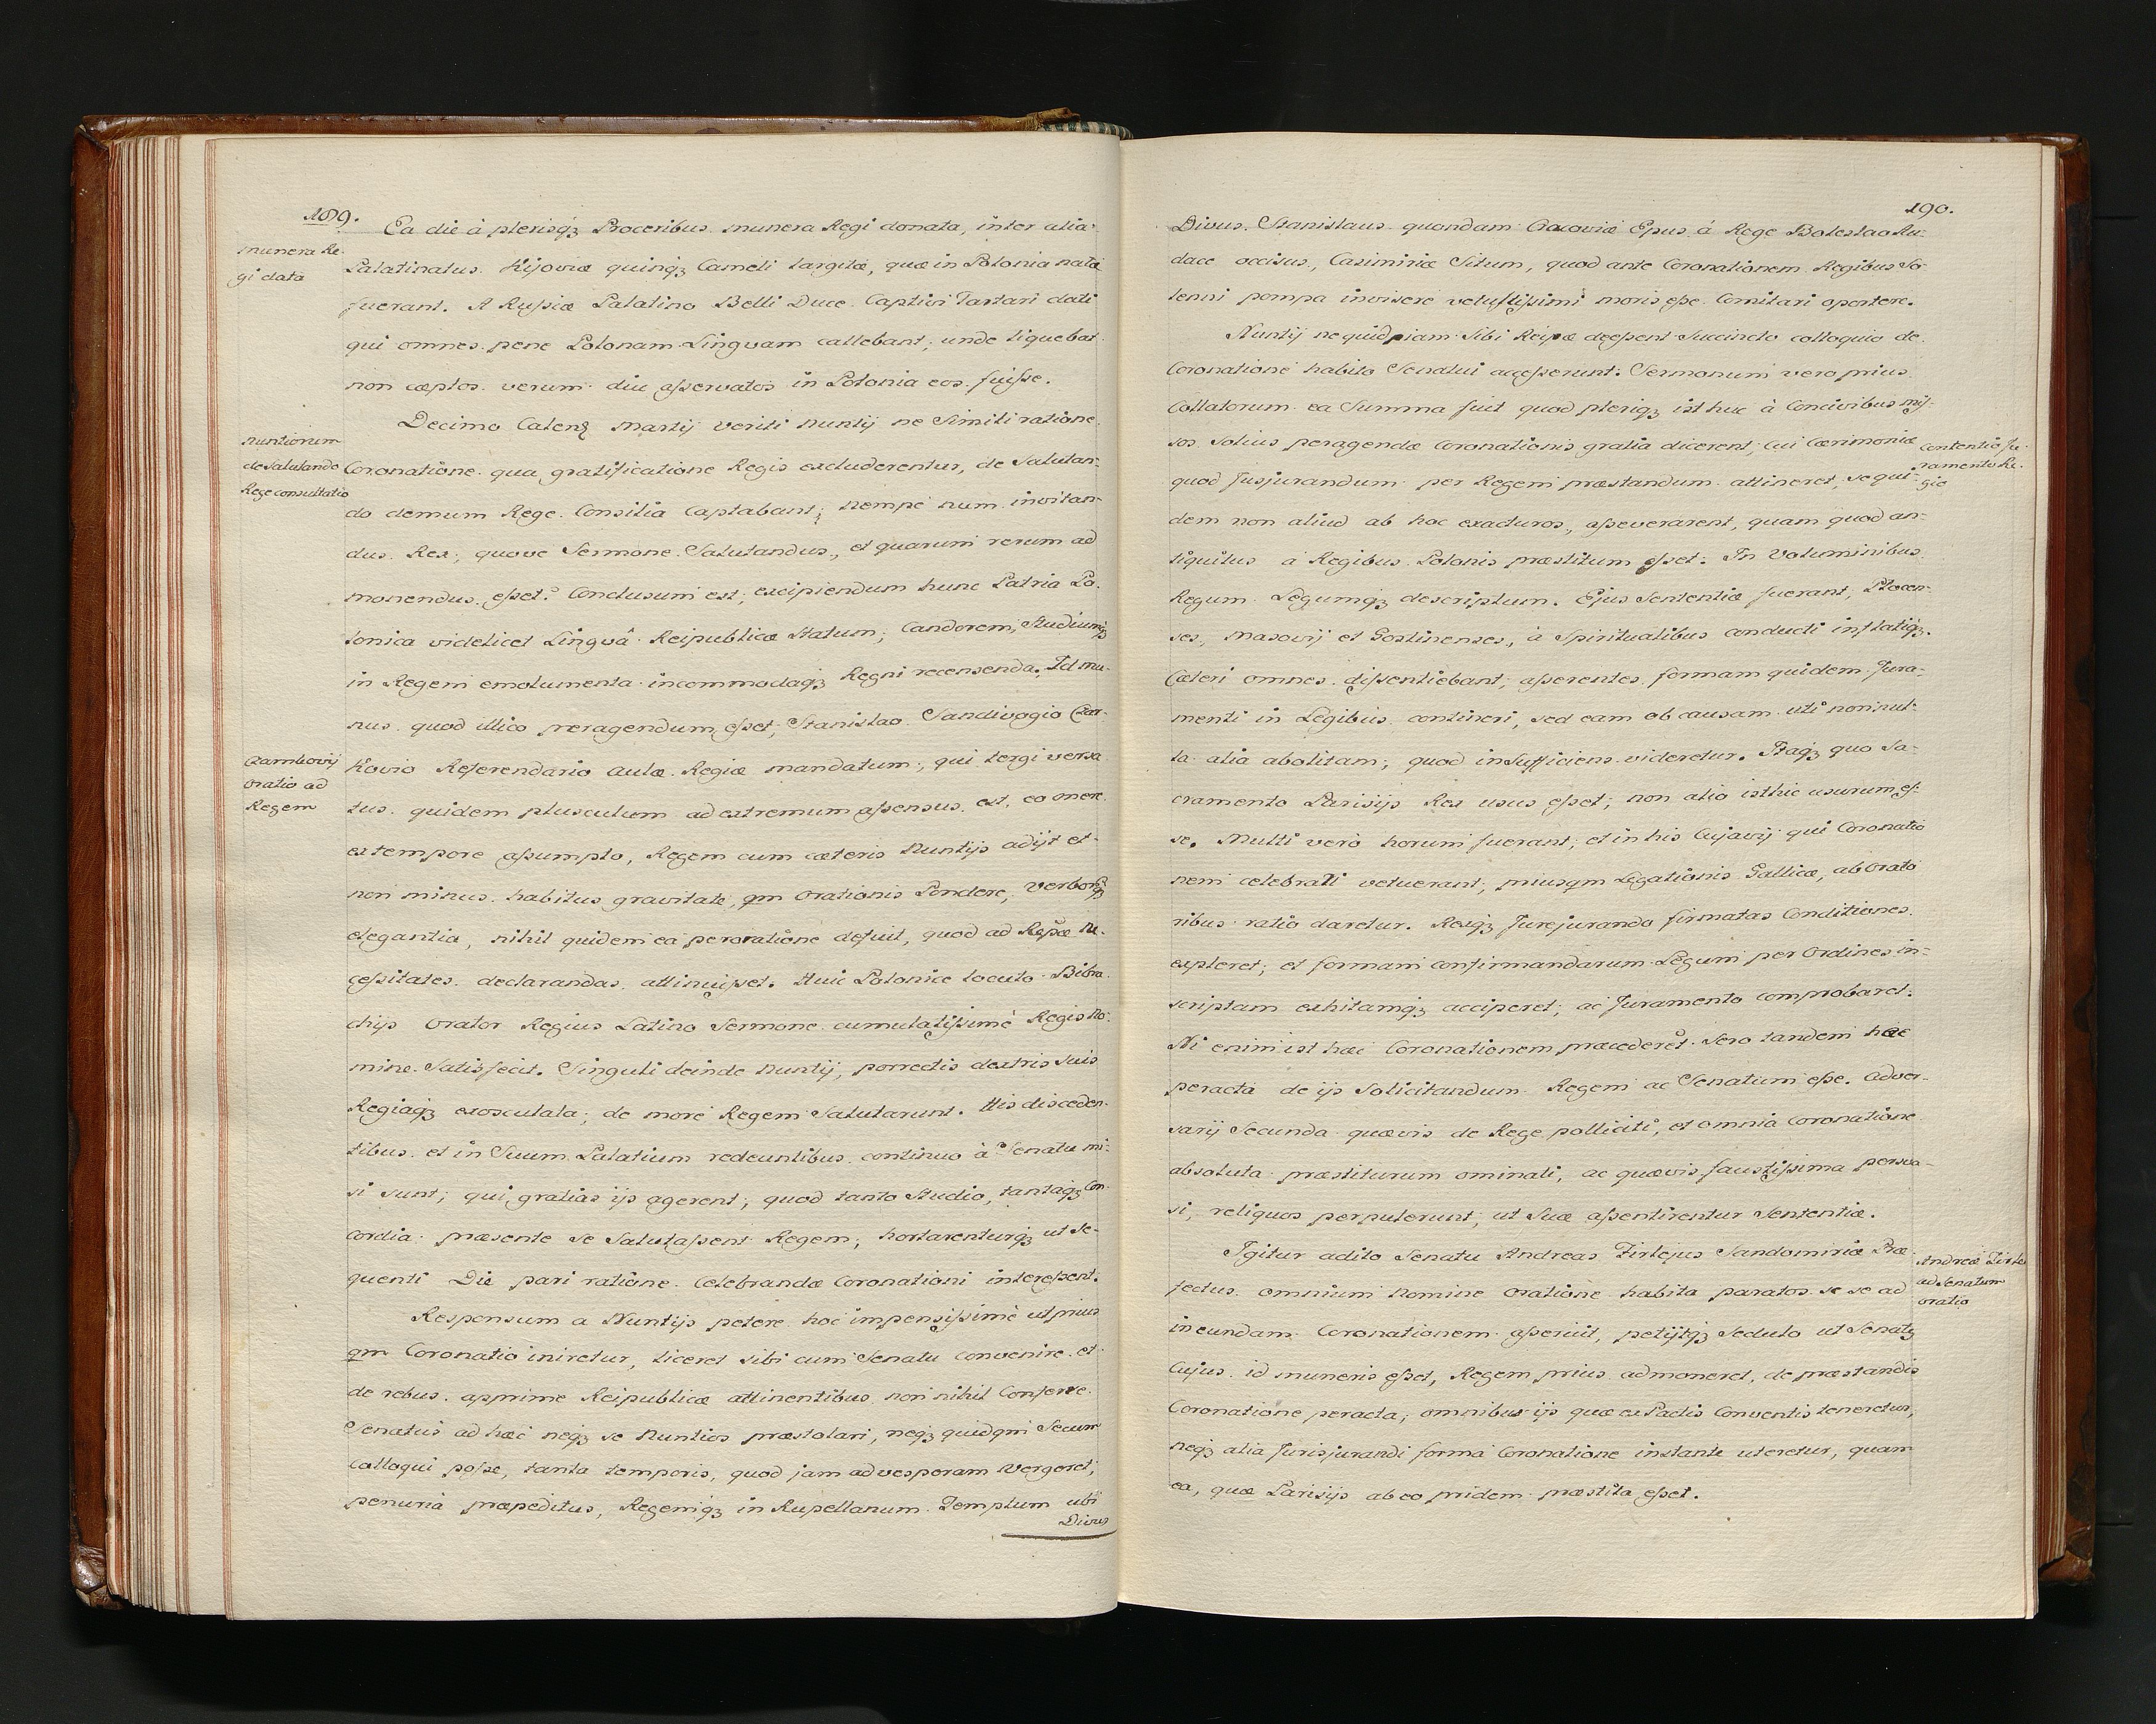 189.
Ea die à plerisq3 Proceribus munera Regi donata, inter alia
munera Re-
gi data
Palatinatus Kijoviæ quinq3 Cameli largitæ, quæ in Polonia natæ
fuerant. A Russiæ Palatino Belli Duce Captivi Tartari dati
qui omnes pene Polonam Linguam callebant; unde liquebat
non cæptos verum diu asservatos in Polonia eos fuisse.
Decimo Calend Martij veriti Nuntij ne Simili ratione
nuntiorum
de salutando
Rege consultatio
Coronatione qua gratificatione Regis excluderentur, de Salutan-
do demum Rege Consilia Captabant; nempè num invitan-
dus Rex; quove Sermone Salutandus, et quarum rerum ad
monendus esset? Conclusum est; excipiendum hunc Patria Po-
lonica videlicet Linguâ Reipublicæ statum; Candorem, studiumq3
in Regem emolumenta incommodaq3 Regni recensenda. Id mu-
nus quod illico peragendum esset, Stanislao Sandivogio Czar-
Czarnkovij
oratio ad
Regem
Kovio Referendario Aulæ Regiæ mandatum; qui tergi versa
tus quidem plusculum ad extremum assensus est, eo onere
ex tempore assumpto, Regem cum cæteris Nuntijs adijt et
non minus habitus gravitate, qm orationis Pondere, verborq3
elegantia, nihil quidem ea peroratione defuit, quod ad Reipæ ne-
cessitates declarandas attinuisset. Huic Polonice locuto Bibra
chijs orator Regius Latino Sermone cumulatissimè Regis no-
mine Satisfecit. Singuli deinde Nuntij, porrectis dextris suis
Regiaq3 exosculata; de more Regem Salutarunt. His disceden-
tibus et in Suum Palatium redeuntibus continuo à Senatu mi-
si sunt; qui gratias ijs agerent; quod tanto studio, tantaq3 Con-
cordia præsente se Salutassent Regem; hortarenturq3 ut se-
quenti Die pari ratione Celebrandæ Coronationi interessent.
Responsum a Nuntijs petere hoc impensissimè ut prius
qm Coronatio iniretur, liceret sibi cum Senatu convenire et
de rebus apprime Reipublicæ attinentibus non nihil Conferre.
Senatus ad hæc neq3 se Nuntios præstolari, neq3 quidqm Secum
colloqui posse, tanta temporis, quod jam ad vesperam vergeret,
penuria præpeditus, Regemq3 in Rupellanum Templum ubi
Divus
190.
Divus Stanislaus quondam Cracoviæ Epus à Rege Boleslao Au-
dace occisus, Casimiriæ Situm, quod ante Coronationem Regibus So-
lenni pompa invisere vetustissimi moris esse Comitari oportere.
Nuntij ne quidpiam Sibi Reipæ deessent Succincto colloquio de
Coronatione habito Senatui accesserunt. Sermonum vero prius
Collatorum ea Summa fuit quod pleriq3 ist huc à Concivibus mis-
sos solius peragendæ Coronationis gratia dicerent, cui Cærimoniæ
contentio Ju-
ramento Re-
gio
quod Jusjurandum per Regem præstandum attineret, se qui-
dem non aliud ab hoc exacturos, asseverarent, quam quod an-
tiquitus à Regibus Polonis præstitum esset. In Voluminibus
Regum Legumq3 descriptum. Ejus sententiæ fuerant, Plocen-
ses, Masovij et Gostinenses, à Spiritualibus conducti inflatiq3.
Cæteri omnes dissentiebant, asserentes formam quidem Jura-
menti in Legibus contineri, sed eam ob causam uti nonnul-
la alia abolitam; quod insufficiens videretur. Itaq3 quo Sa-
cramento Parisijs Rex usus esset; non alio isthic usurum es-
se. Multi verò horum fuerant, et in his Cujavij qui Coronatio
nem celebrari vetuerant; priusqm Legationis Gallicæ, ab orato
ribus ratio daretur. Rexq3 Jurejurando firmatas Conditiones
expleret; et formam confirmandarum Legum per Ordines in-
scriptam exhitamq3 acciperet; ac Juramento comprobaret.
Ni enim ist hæc Coronationem præcederet sero tandem hac
peracta de ijs Solicitandum Regem ac Senatum esse. Adver-
sarij Secunda quævis de Rege polliciti, et omnia Coronatione
absoluta præstiturum ominati, ac quævis faustissima persua-
si, reliquos perpulerunt, ut Suæ assentirentur sententiæ.
Igitur adito Senatu Andreas Firlejus Sandomiriæ Præ-
Andreæ Firlei
ad Senatum
oratio
fectus omnium nomine oratione habita paratos se se ad
ineundam Coronationem asseruit, petijtq3 sedulo ut Senatq
Cujus id muneris esset, Regem prius admoneret, de præstandis
Coronatione peracta; omnibus ijs quæ ex Pactis Conventis teneretur,
neq3 alia Jurisjurandi forma Coronatione instante uteretur, quam
ea, quæ Parisijs ab eo pridem præstita esset.